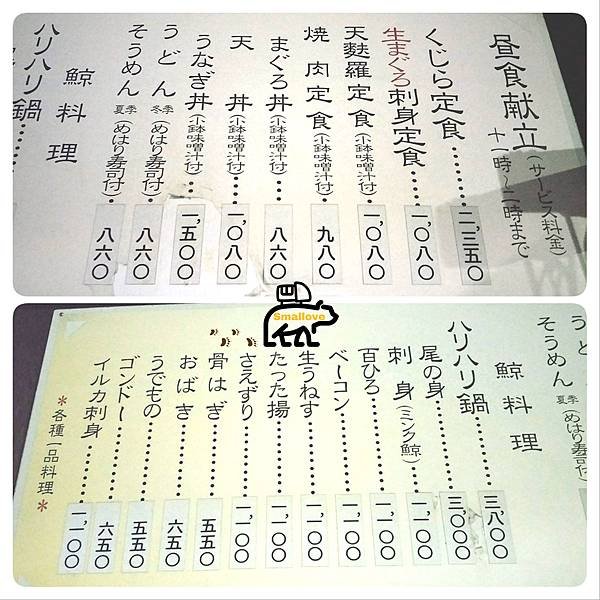 昼食献立(サービス料金)
十一時~二時まで
くじら定食……二,三五〇
生まぐろ刺身定食……一,〇八〇
天麩羅定食(小鉢味噌汁付)……一,〇八〇
焼肉定食(小鉢味噌汁付)……九八〇
まぐろ丼(小鉢味噌汁付)……八六〇
天丼(小鉢味噌汁付)……一,〇八〇
うなぎ丼(小鉢味噌汁付)……一,五〇〇
うどん 冬季(めはり寿司付)……八六〇
そうめん 夏季(めはり寿司付)……八六〇
鯨料理
ハリハリ鍋
Smallove
うどん
そうめん 夏季(めはり寿司付)
鯨料理
ハリハリ鍋……三,八〇〇
尾の身……三,〇〇〇
刺身(ミンク鯨)……一,一〇〇
百ひろ……一,一〇〇
ベーコン……一,一〇〇
生うねす……一,一〇〇
たった揚……一,一〇〇
さえずり……一,一〇〇
骨はぎ……五五〇
おばき……六五〇
うでもの……五五〇
ゴンドー……六五〇
イルカ刺身……一,一〇〇
*各種一品料理*